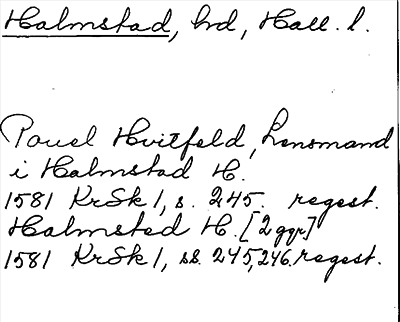 Halmstad, hd, Hall. l.
Pouel Hvitfeld, Lensmand
i Halmstad H.
1581 KrSk 1, s. 245. regest.
Halmsted H. [2 ggr]
1581 KrSk 1, ss. 245, 246. regest.